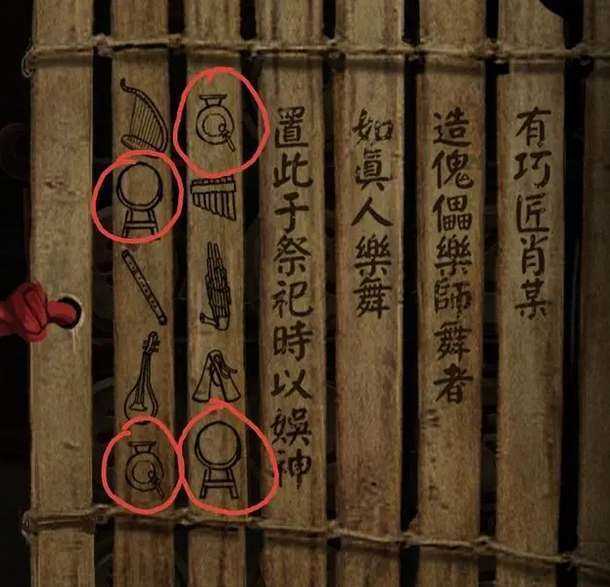 有巧匠肖某
造傀儡樂師舞者
如真人樂舞
置此于祭祀時以娛神